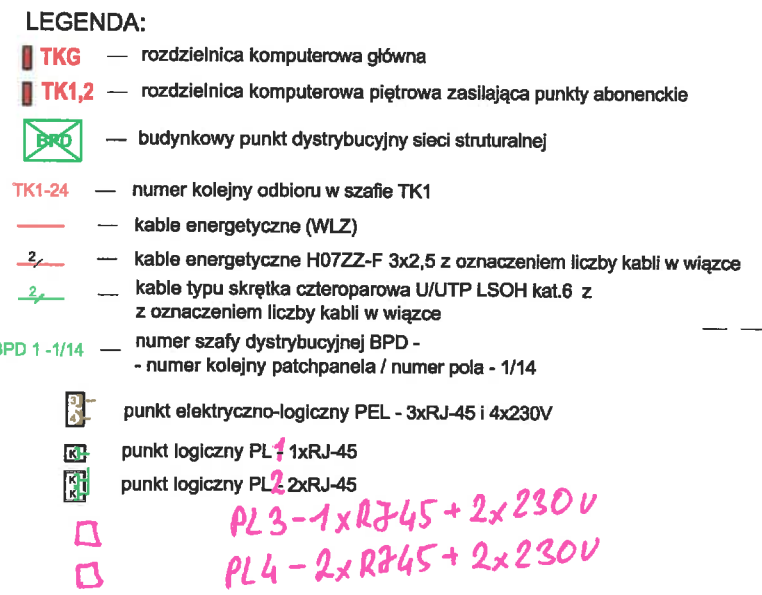 LEGENDA:
TKG — rozdzielnica komputerowa główna
TK1,2 — rozdzielnica komputerowa piętrowa zasilająca punkty abonenckie
BPD — budynkowy punkt dystrybucyjny sieci struturalnej
TK1-24 — numer kolejny odbioru w szafie TK1
— kable energetyczne (WLZ)
2 — kable energetyczne H07ZZ-F 3x2,5 z oznaczeniem liczby kabli w wiązce
2 — kable typu skrętka czteroparowa U/UTP LSOH kat.6 z
z oznaczeniem liczby kabli w wiązce
BPD 1 -1/14 — numer szafy dystrybucyjnej BPD -
- numer kolejny patchpanela / numer pola - 1/14
3 4 punkt elektryczno-logiczny PEL - 3xRJ-45 i 4x230V
K punkt logiczny PL1- 1xRJ-45
K K punkt logiczny PL2- 2xRJ-45
PL3-1xRJ45+2x230V
PL4-2xRJ45+2x230V